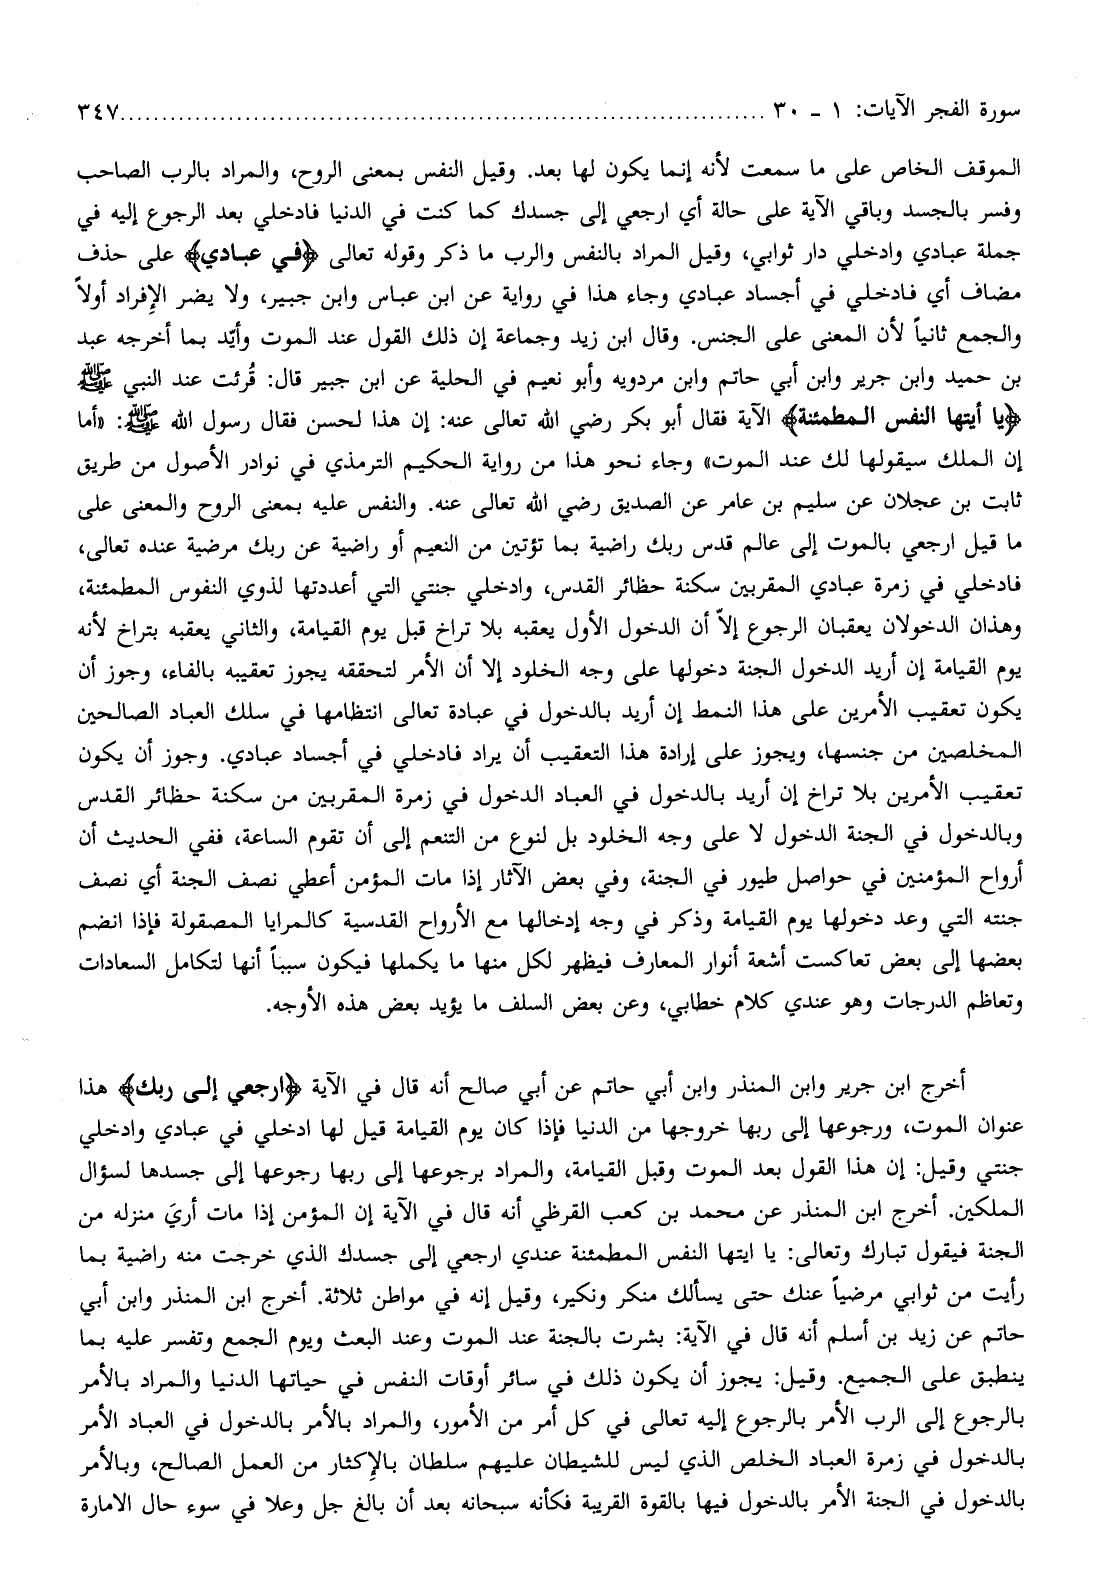 سورة الفجر الآيات: ١ ـ ٣٠ .......................................................................... ٣٤٧
الموقف الخاص على ما سمعت لأنه إنما يكون لها بعد. وقيل النفس بمعنى الروح، والمراد بالرب الصاحب
وفسر بالجسد وباقي الآية على حالة أي ارجعي إلى جسدك كما كنت في الدنيا فادخلي بعد الرجوع إليه في
جملة عبادي وادخلي دار ثوابي، وقيل المراد بالنفس والرب ما ذكر وقوله تعالى ﴿في عبادي﴾ على حذف
مضاف أي فادخلي في أجساد عبادي وجاء هذا في رواية عن ابن عباس وابن جبير، ولا يضر الإفراد أولاً
والجمع ثانياً لأن المعنى على الجنس. وقال ابن زيد وجماعة إن ذلك القول عند الموت وأيّد بما أخرجه عبد
بن حميد وابن جرير وابن أبي حاتم وابن مردويه وأبو نعيم في الحلية عن ابن جبير قال: قُرئت عند النبي ﷺ
﴿يا أيتها النفس المطمئنة﴾ الآية فقال أبو بكر رضي الله تعالى عنه: إن هذا لحسن فقال رسول الله ﷺ: «أما
إن الملك سيقولها لك عند الموت» وجاء نحو هذا من رواية الحكيم الترمذي في نوادر الأصول من طريق
ثابت بن عجلان عن سليم بن عامر عن الصديق رضي الله تعالى عنه. والنفس عليه بمعنى الروح والمعنى على
ما قيل ارجعي بالموت إلى عالم قدس ربك راضية بما تؤتين من النعيم أو راضية عن ربك مرضية عنده تعالى،
فادخلي في زمرة عبادي المقربين سكنة حظائر القدس، وادخلي جنتي التي أعددتها لذوي النفوس المطمئنة،
وهذان الدخولان يعقبان الرجوع إلاّ أن الدخول الأول يعقبه بلا تراخ قبل يوم القيامة، والثاني يعقبه بتراخ لأنه
يوم القيامة إن أريد الدخول الجنة دخولها على وجه الخلود إلا أن الأمر لتحققه يجوز تعقيبه بالفاء، وجوز أن
يكون تعقيب الأمرين على هذا النمط إن أريد بالدخول في عبادة تعالى انتظامها في سلك العباد الصالحين
المخلصين من جنسها، ويجوز على إرادة هذا التعقيب أن يراد فادخلي في أجساد عبادي. وجوز أن يكون
تعقيب الأمرين بلا تراخ إن أريد بالدخول في العباد الدخول في زمرة المقربين من سكنة حظائر القدس
وبالدخول في الجنة الدخول لا على وجه الخلود بل لنوع من التنعم إلى أن تقوم الساعة، ففي الحديث أن
أرواح المؤمنين في حواصل طيور في الجنة، وفي بعض الآثار إذا مات المؤمن أعطي نصف الجنة أي نصف
جنته التي وعد دخولها يوم القيامة وذكر في وجه إدخالها مع الأرواح القدسية كالمرايا المصقولة فإذا انضم
بعضها إلى بعض تعاكست أشعة أنوار المعارف فيظهر لكل منها ما يكملها فيكون سبباً أنها لتكامل السعادات
وتعاظم الدرجات وهو عندي كلام خطابي، وعن بعض السلف ما يؤيد بعض هذه الأوجه.
أخرج ابن جرير وابن المنذر وابن أبي حاتم عن أبي صالح أنه قال في الآية ﴿ارجعي إلى ربك﴾ هذا
عنوان الموت، ورجوعها إلى ربها خروجها من الدنيا فإذا كان يوم القيامة قيل لها ادخلي في عبادي وادخلي
جنتي وقيل: إن هذا القول بعد الموت وقبل القيامة، والمراد برجوعها إلى ربها رجوعها إلى جسدها لسؤال
الملكين. أخرج ابن المنذر عن محمد بن كعب القرظي أنه قال في الآية إن المؤمن إذا مات أريَ منزله من
الجنة فيقول تبارك وتعالى: يا ايتها النفس المطمئنة عندي ارجعي إلى جسدك الذي خرجت منه راضية بما
رأيت من ثوابي مرضياً عنك حتى يسألك منكر ونكير، وقيل إنه في مواطن ثلاثة. أخرج ابن المنذر وابن أبي
حاتم عن زيد بن أسلم أنه قال في الآية: بشرت بالجنة عند الموت وعند البعث ويوم الجمع وتفسر عليه بما
ينطبق على الجميع. وقيل: يجوز أن يكون ذلك في سائر أوقات النفس في حياتها الدنيا والمراد بالأمر
بالرجوع إلى الرب الأمر بالرجوع إليه تعالى في كل أمر من الأمور، والمراد بالأمر بالدخول في العباد الأمر
بالدخول في زمرة العباد الخلص الذي ليس للشيطان عليهم سلطان بالإكثار من العمل الصالح، وبالأمر
بالدخول في الجنة الأمر بالدخول فيها بالقوة القريبة فكأنه سبحانه بعد أن بالغ جل وعلا في سوء حال الامارة